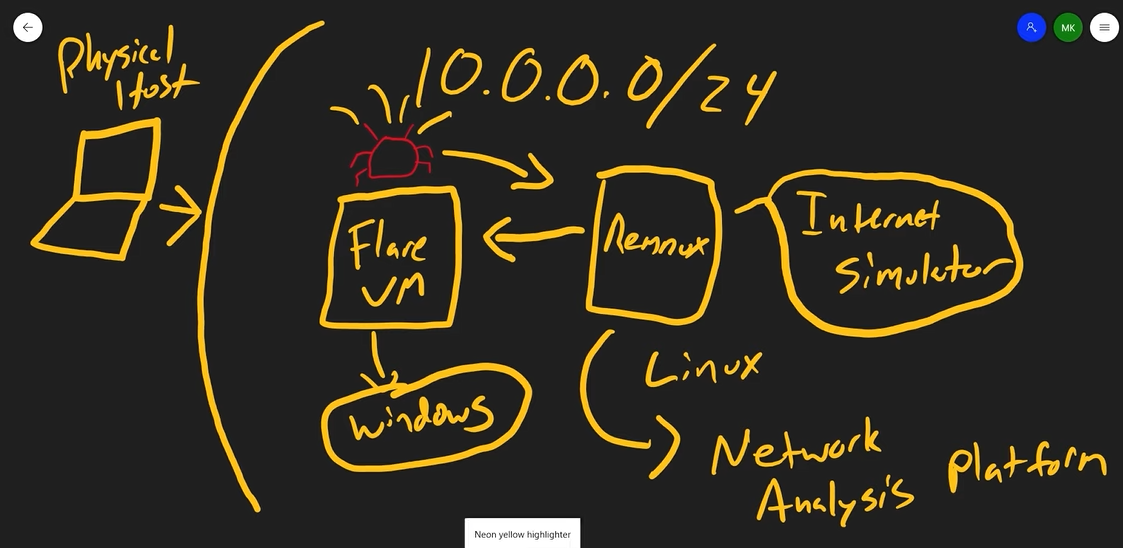 Physical
Host
MK
10.0.0.0/24
Flare
VM
Remnux
Internet
Simulator
Windows
Linux
Network
Analysis Platform
Neon yellow highlighter